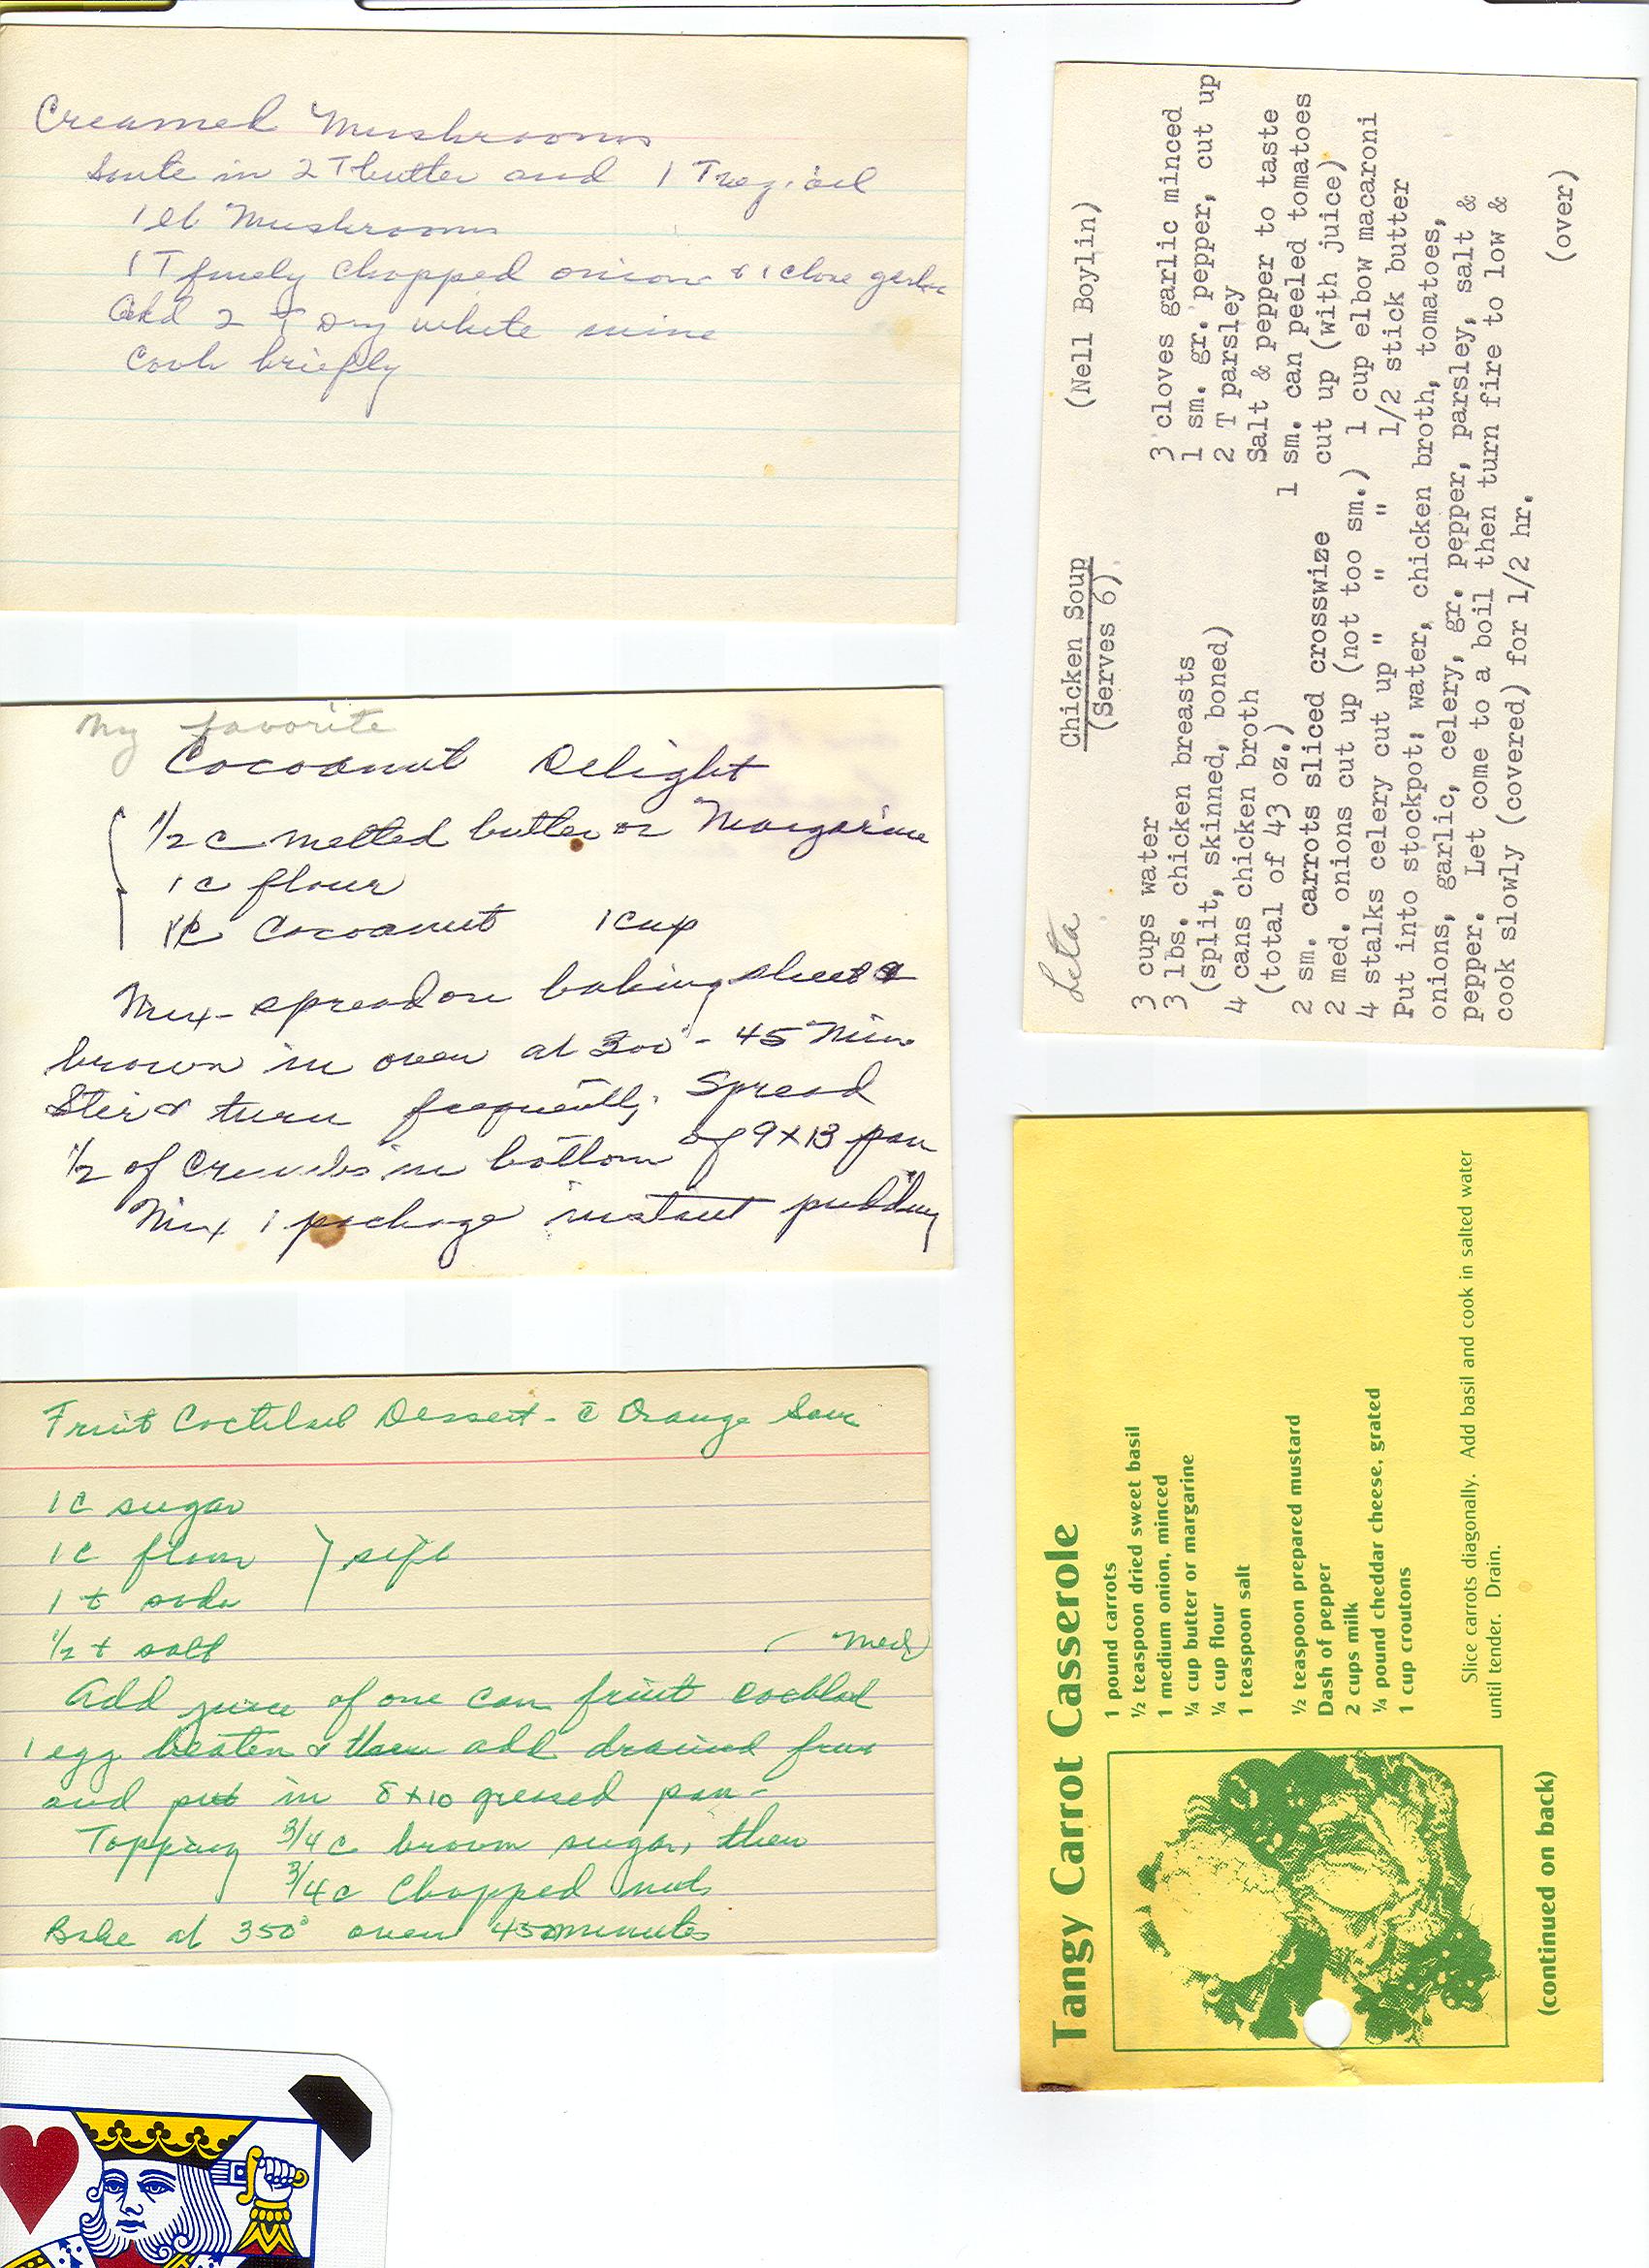 Creamed Mushrooms
Saute in 2 T butter and 1 T veg. oil
1 lb Mushrooms
1 T finely chopped onion & 1 clove garlic
Add 2 T Dry white wine
Cook briefly
My favorite
Cocoanut Delight
1/2 c melted butter or Margarine
1 c flour
Cocoanut 1 cup
Mix - spread on baking sheet &
brown in oven at 300° - 45 Min
Stir & turn frequently. Spread
1/2 of crumbs in bottom of 9x13 pan
Mix 1 package instant pudding
Fruit Coctilail Dessert - c̄ Orange Sauce
1 c sugar
1 c flour } sift
1 t soda
1/2 t salt
Med
Add juice of one can fruit cocktail
1 egg beaten & then add drained fruit
and put in 8x10 greased pan -
Topping 3/4 c brown sugar, then
3/4 c Chopped nuts
Bake at 350° oven 45 minutes
Leta
Chicken Soup (Nell Boylin)
(Serves 6)
3 cups water 3 cloves garlic minced
3 lbs. chicken breasts 1 sm. gr. pepper, cut up
(split, skinned, boned) 2 T parsley
4 cans chicken broth Salt & pepper to taste
(total of 43 oz.) 1 sm. can peeled tomatoes
2 sm. carrots sliced crosswize cut up (with juice)
2 med. onions cut up (not too sm.) 1 cup elbow macaroni
4 stalks celery cut up " " " " 1/2 stick butter
Put into stockpot; water, chicken broth, tomatoes,
onions, garlic, celery, gr. pepper, parsley, salt &
pepper. Let come to a boil then turn fire to low &
cook slowly (covered) for 1/2 hr.
(over)
Tangy Carrot Casserole
1 pound carrots
½ teaspoon dried sweet basil
1 medium onion, minced
¼ cup butter or margarine
¼ cup flour
1 teaspoon salt
½ teaspoon prepared mustard
Dash of pepper
2 cups milk
¼ pound cheddar cheese, grated
1 cup croutons
Slice carrots diagonally. Add basil and cook in salted water
until tender. Drain.
(continued on back)